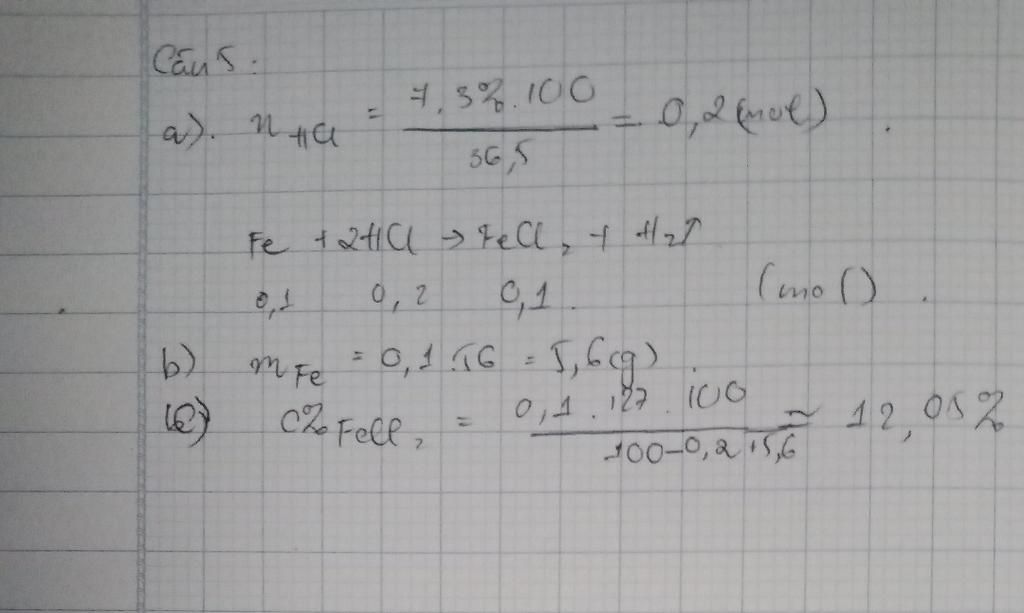 Câu 5:
a). n HCl = 7,3%.100 / 36,5 = 0,2 (mol)
Fe + 2HCl → FeCl2 + H2↑
0,1 0,2 0,1 (mol)
b) mFe = 0,1.56 = 5,6(g)
(c) C% FeCl2 = 0,1.127.100 / 100-0,2+5,6 ≈ 12,05%